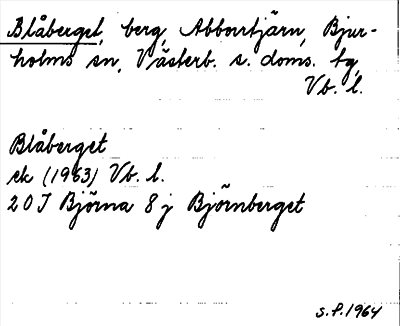 Blåberget, berg, Abborrtjärn, Bjur-
holms sn, Västerb. s. doms. fg,
Vb. l.
Blåberget
ek (1963) Vb. l.
20 J Björna 8 j Björnberget
S.P. 1964